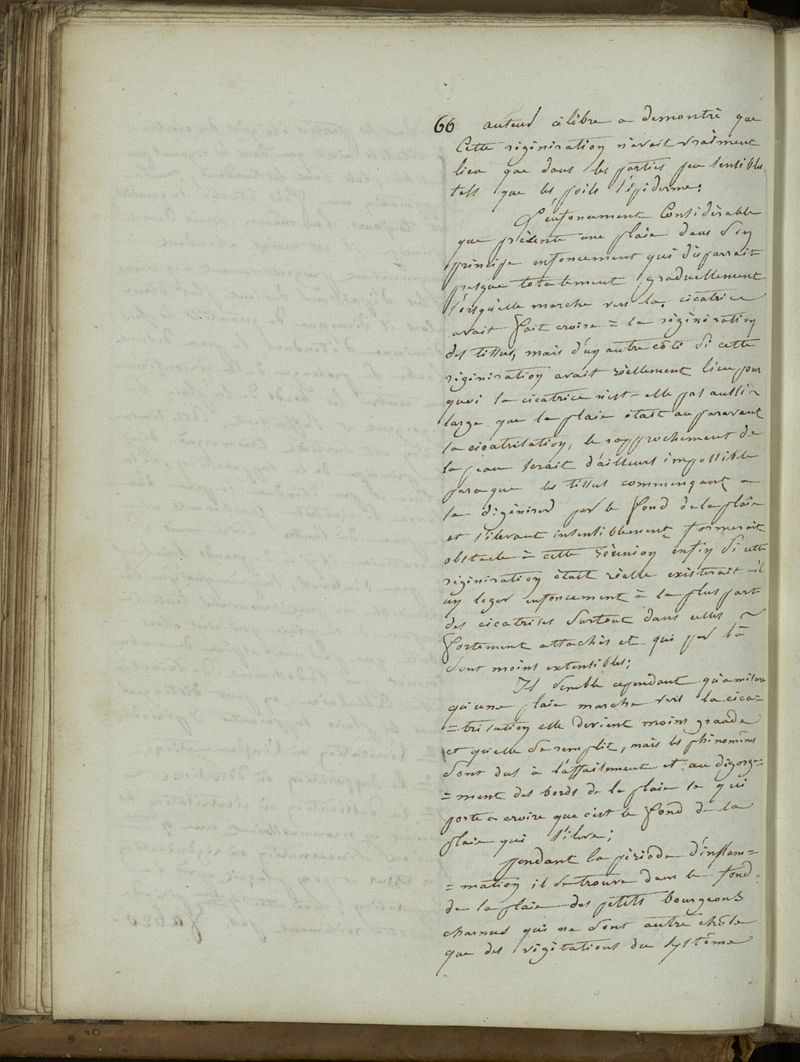 66 auteur célèbre a demontré que
Cette régéniration n'avait vraiment
lieu que dans les parties peu sensibles
tels que les poils l'épiderme;
L'enfoncement Considérable
que présente une plaie dans Son
principe enfoncement qui disparrait
presque totalement graduellement
lorsqu'elle marche vers la cicatrice
avait fait croire = la régéniration
des tissus, mais d'un autre côté Si cette
régéniration avait réellement lieu pour
quoi la cicatrice n'est-elle pas aussi
large que la plaie était auparavant
la cicatrisation, le rapprochement de
la peau serait d'ailleurs impossible
parceque les tissus commençant a
se régénérer par le fond de la plaie
et s'élevant insensiblement formerait
obstacle = cette réunion enfin Si cette
régéniration était réelle existerait-il
un leger enfoncement à la plus part
des cicatrises Surtout dans celles
fortement attachés et qui par là
Sont moins extensibles;
Il Semble cependant qu'a mesure
qu'une plaie marche vers la cica=
=trisation elle devient moins grande
et qu'elle Se remplit, mais les phénomènes
Sont dus à l'affaissement et au dégorge=
=ment des bords de la plaie ce qui
porte a croire que c'est le fond de la
plaie qui s'éleve;
pendant la période d'inflam=
=mation il Se trouve dans le fond
de la plaie des petits bourgeons
charnus qui ne Sont autre chôse
que des végétations du système